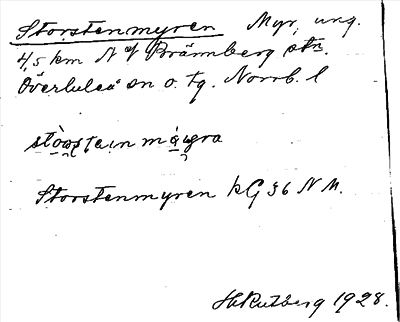 Storstenmyren Myr, ung.
4,5 km N of Brännberg stn.
Överluleå sn o. tg. Norrb. l
Storstenmyren kG 36 N M.
H Rutberg 1928.